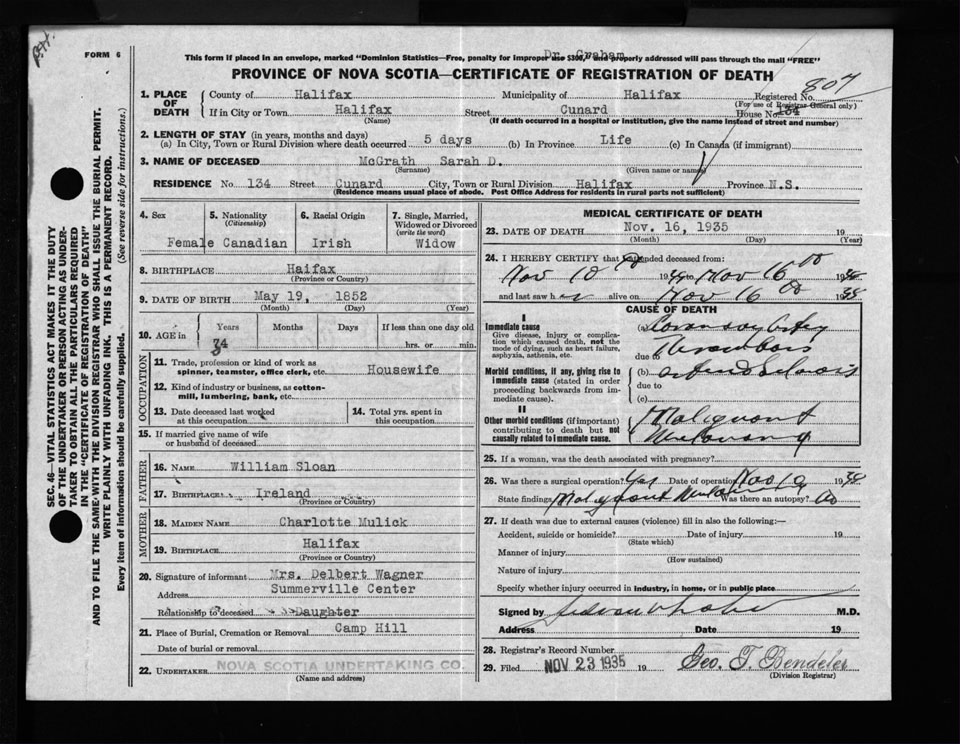 FORM 6
Dr. Graham
This form if placed in an envelope, marked "Dominion Statistics—Free, penalty for improper use $300," and properly addressed will pass through the mail "FREE"
PROVINCE OF NOVA SCOTIA—CERTIFICATE OF REGISTRATION OF DEATH
807
1. PLACE OF DEATH
County of Halifax Municipality of Halifax Registered No.
(For use of Registrar General only)
If in City or Town Halifax Street Cunard House No. 134
(Name) (If death occurred in a hospital or institution, give the name instead of street and number)
2. LENGTH OF STAY (in years, months and days)
(a) In City, Town or Rural Division where death occurred 5 days (b) In Province Life (c) In Canada (if immigrant)
3. NAME OF DECEASED McGrath Sarah D.
(Surname) (Given name or names)
RESIDENCE No. 134 Street Cunard City, Town or Rural Division Halifax Province N.S.
(Residence means usual place of abode. Post Office Address for residents in rural parts not sufficient)
4. Sex 5. Nationality (Citizenship) 6. Racial Origin 7. Single, Married, Widowed or Divorced (write the word)
Female Canadian Irish Widow
8. BIRTHPLACE Haifax
(Province or Country)
9. DATE OF BIRTH May 19, 1852
(Month) (Day) (Year)
10. AGE in Years Months Days If less than one day old
hrs. or min.
OCCUPATION
11. Trade, profession or kind of work as spinner, teamster, office clerk, etc. Housewife
12. Kind of industry or business, as cotton-mill, lumbering, bank, etc.
13. Date deceased last worked at this occupation
14. Total yrs. spent in this occupation
15. If married give name of wife or husband of deceased
FATHER
16. NAME William Sloan
17. BIRTHPLACE Ireland
(Province or Country)
MOTHER
18. MAIDEN NAME Charlotte Mulick
19. BIRTHPLACE Halifax
(Province or Country)
20. Signature of informant Mrs. Delbert Wagner
Address Summerville Center
Relationship to deceased Daughter
21. Place of Burial, Cremation or Removal Camp Hill
Date of burial or removal
22. UNDERTAKER NOVA SCOTIA UNDERTAKING CO.
(Name and address)
MEDICAL CERTIFICATE OF DEATH
23. DATE OF DEATH Nov. 16, 1935 19
(Month) (Day) (Year)
24. I HEREBY CERTIFY that I attended deceased from:
Nov 10 19 to Nov 16 19
and last saw her alive on Nov 16 19
CAUSE OF DEATH
I
Immediate cause
Give disease, injury or complication which caused death, not the mode of dying, such as heart failure, asphyxia, asthenia, etc.
(a) Coronary Artery
due to Thrombosis
Morbid conditions, if any, giving rise to immediate cause (stated in order proceeding backwards from immediate cause).
(b) arteriosclerosis
due to
(c)
II
Other morbid conditions (if important) contributing to death but not causally related to immediate cause.
Malignant
25. If a woman, was the death associated with pregnancy?
26. Was there a surgical operation? Yes Date of operation Nov 19
State findings Malignant Was there an autopsy? No
27. If death was due to external causes (violence) fill in also the following:—
Accident, suicide or homicide? Date of injury 19
(State which)
Manner of injury
(How sustained)
Nature of injury
Specify whether injury occurred in industry, in home, or in public place
Signed by M.D.
Address Date 19
28. Registrar's Record Number
29. Filed NOV 23 1935 19 Geo. T. Bendeler
(Division Registrar)
SEC. 46—VITAL STATISTICS ACT MAKES IT THE DUTY
OF THE UNDERTAKER OR PERSON ACTING AS UNDER-
TAKER TO OBTAIN ALL THE PARTICULARS REQUIRED
IN THE "CERTIFICATE OF REGISTRATION OF DEATH"
AND TO FILE THE SAME WITH THE DIVISION REGISTRAR WHO SHALL ISSUE THE BURIAL PERMIT.
WRITE PLAINLY WITH UNFADING INK. THIS IS A PERMANENT RECORD.
Every item of information should be carefully supplied. (See reverse side for instructions.)